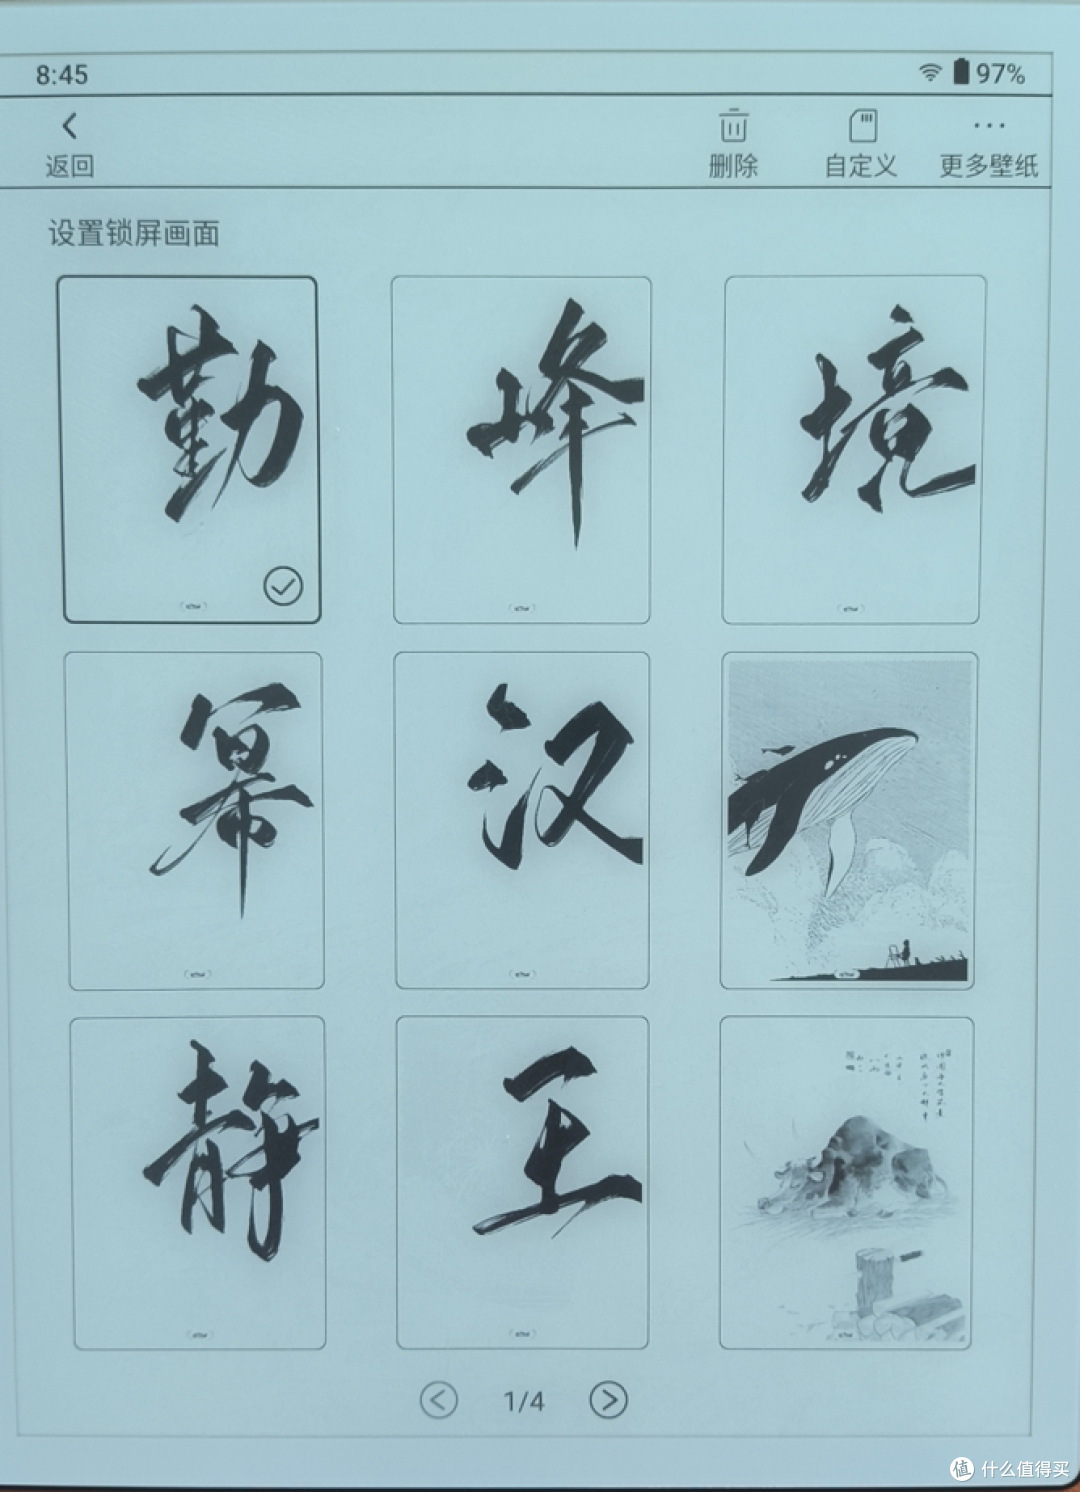 8:45 97%
返回 删除 自定义 更多壁纸
设置锁屏画面
勤 峰 境
幂 汉
静 王
1/4
值 什么值得买